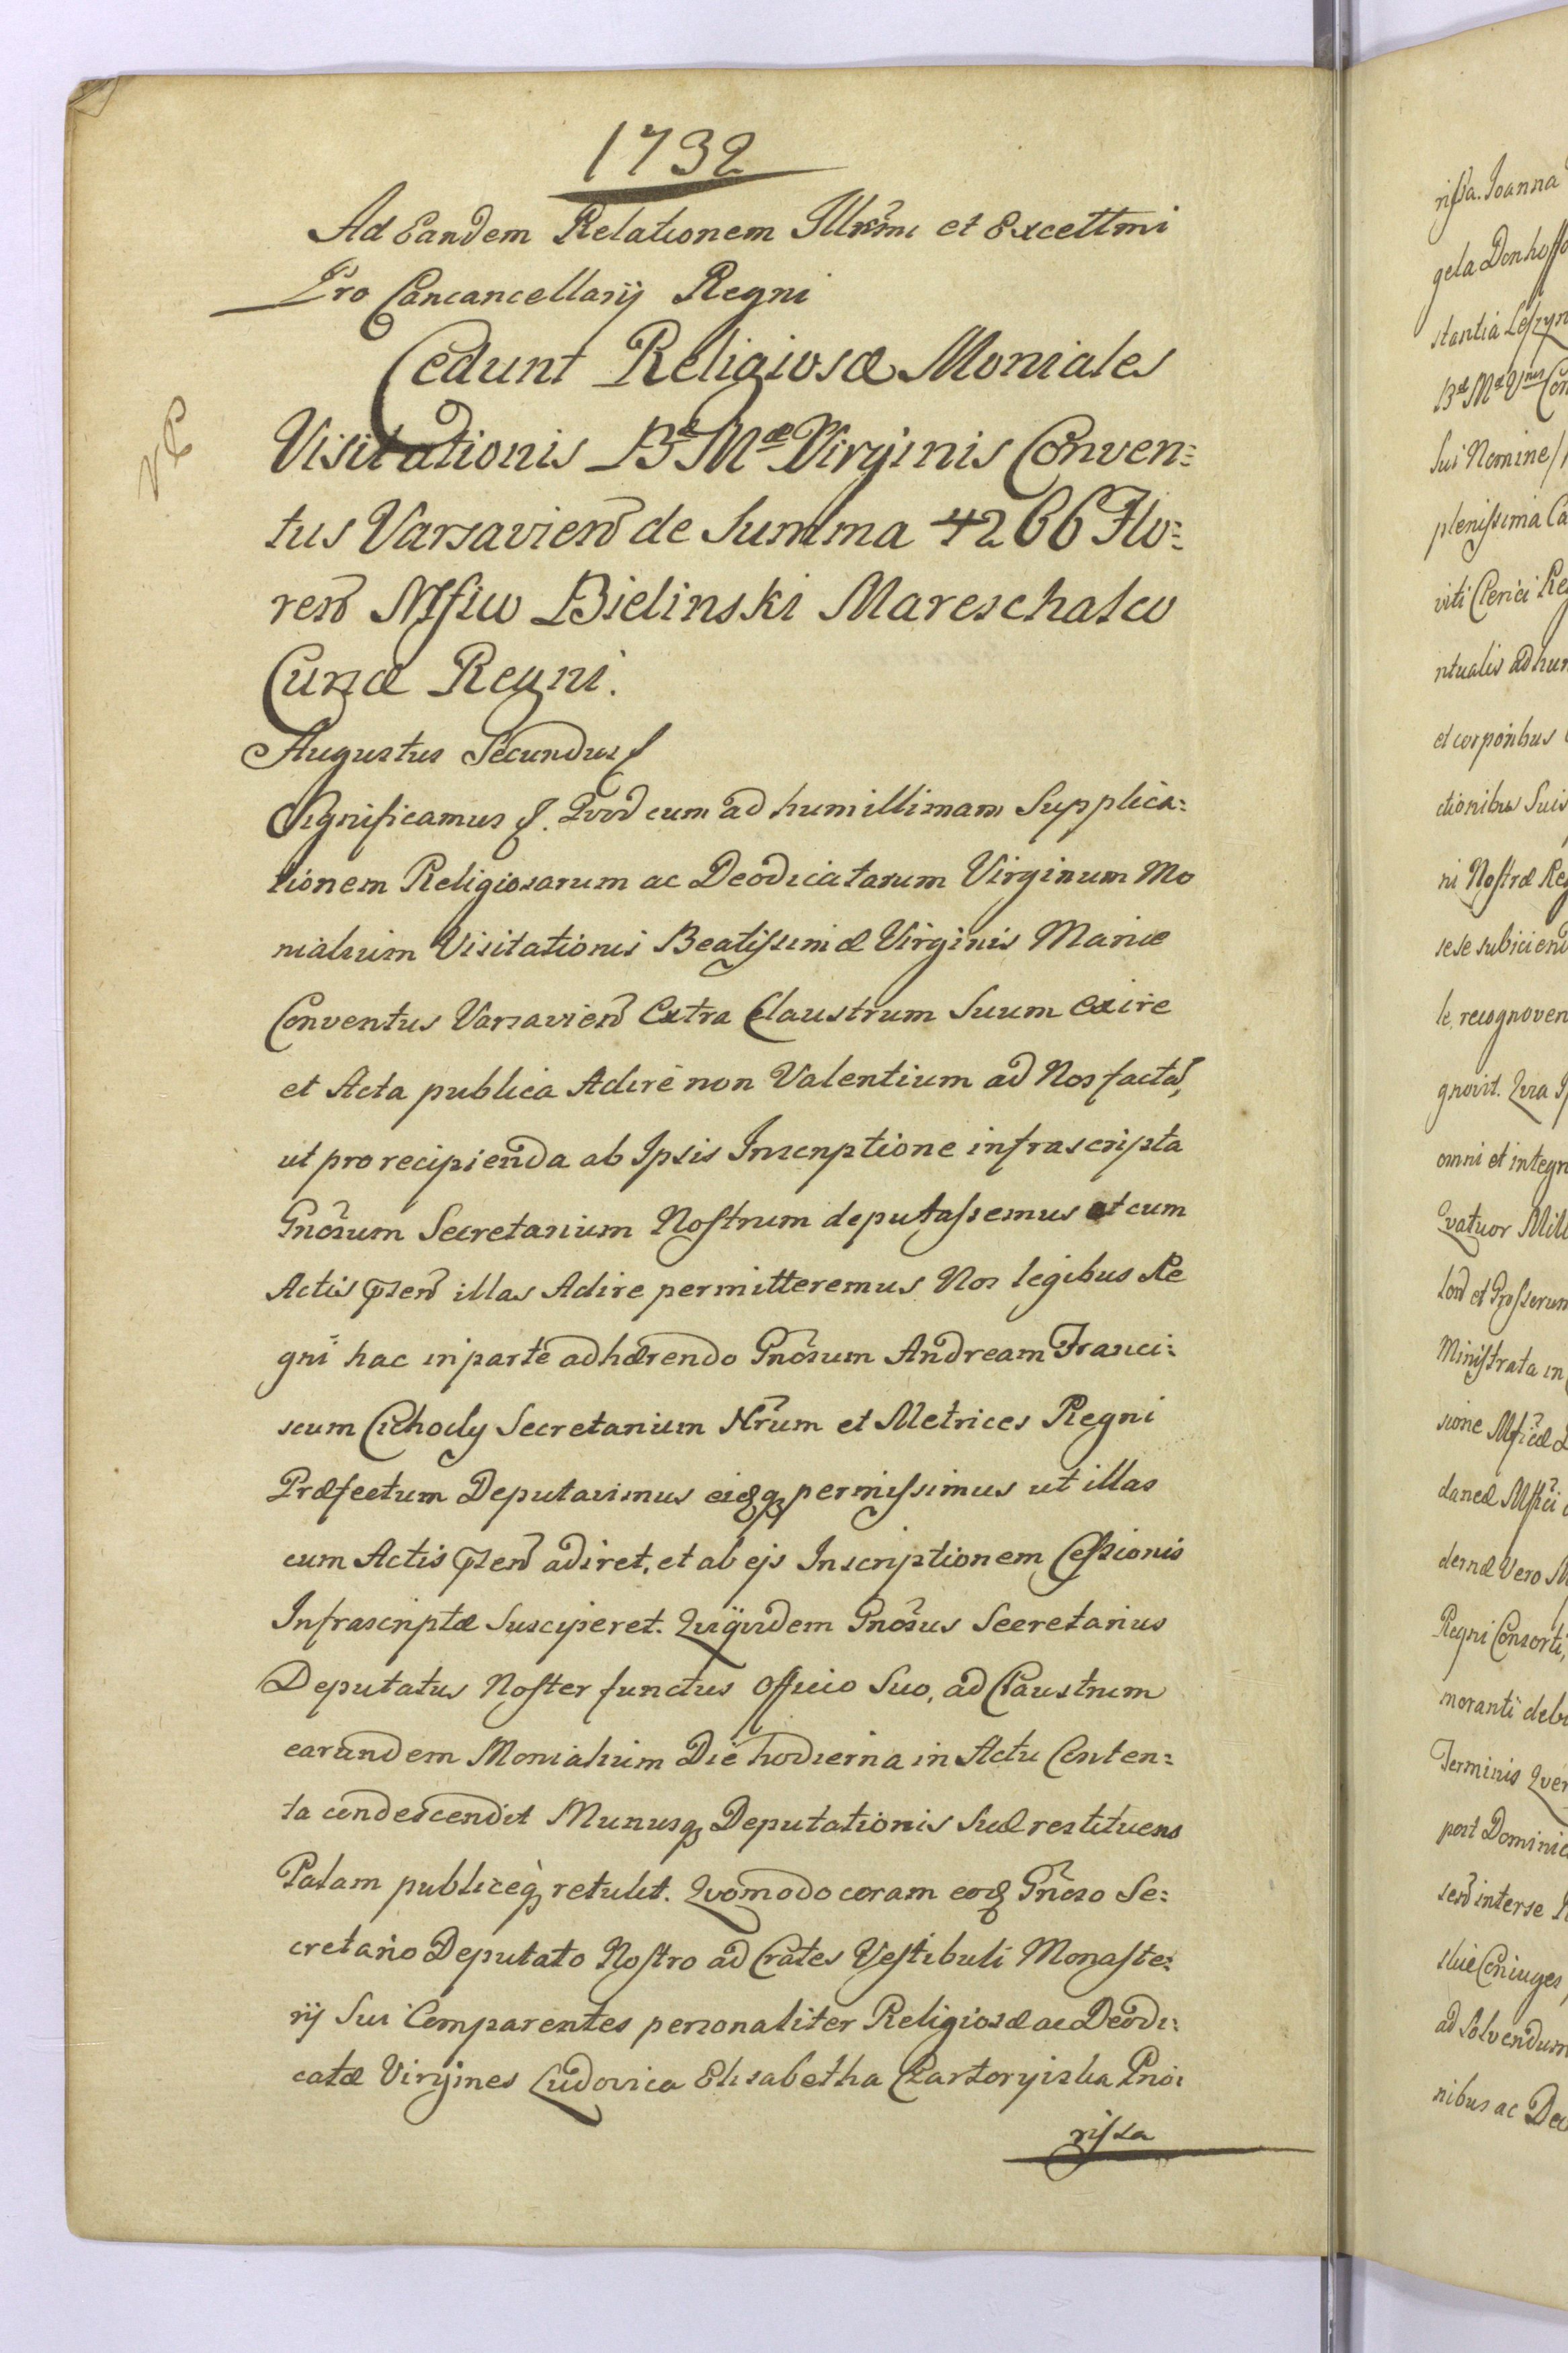 1732
Ad Eandem Relationem Illr̃mi et Excellmi
Pro Cancancellarij Regni
Cedunt Religiosæ Moniales
Visitationis Bæ Mæ Virginis Conven=
tus Varsavien̄ de Summa 4266 Flo=
ren̄ Mfico Bielinski Mareschalco
Curiæ Regni.
Augustus Secundus
Significamus Quod cum ad humillimam Supplica=
tionem Religiosarum ac Deodicatarum Virginum Mo
nialium Visitationis Beatissimæ Virginis Mariæ
Conventus Varsavien̄ Extra Claustrum Suum Exire
et Acta publica Adire non Valentium ad Nos factā,
ut pro recipienda ab Ipsis Inscriptione infrascripta
Gnõsum Secretarium Nostrum deputassemus et cum
Actis pñsen̄ illas Adire permitteremus Nos legibus Re
gni hac in parte adhærendo Gnõsum Andream Franci=
scum Cichocky Secretarium Nr̃um et Metrices Regni
Præfectum Deputavimus eidq permissimus ut illas
cum Actis pñsen̄ adiret, et ab ejs Inscriptionem Cessionis
Infrascriptæ Susciperet. Quiquidem Gnõsus Secretarius
Deputatus Noster functus Officio Suo, ad Claustrum
earundem Monialium Die hodierna in Actu Conten=
ta condescendit Munusq Deputationis Suæ restituens
Palam publiceq̀ retulit. Quomodo coram eod Gñoso Se=
cretario Deputato Nostro ad Crates Vestibuli Monaste=
rij Sui Comparentes personaliter Religiosæ ac Deodi=
catæ Virgines Ludovica Elisabetha Czartoryiska Prio
rissa
NB
rissa. Joanna
gela Donhoffo
stantia Leszyn
Bæ Mæ Vnis Con
Sui Nomine
plenissima Ca
viti Clerici Reg
ntualis ad hun
et corporibus
ctionibus Suis
ni Nostræ Reg
sese subiicien̄
le, recognover
gnovit. Quia
omni et integr
Quatuor Mill
lon̄ et Grossorum
Ministrata in
sione Mficæ
daneæ Mfici
dernæ Vero M
Regni Consorti,
moranti debi
Terminis Quer
post Dominic
sen̄ inter se
sive Coniuges,
ad Solvendum
nibus ac De